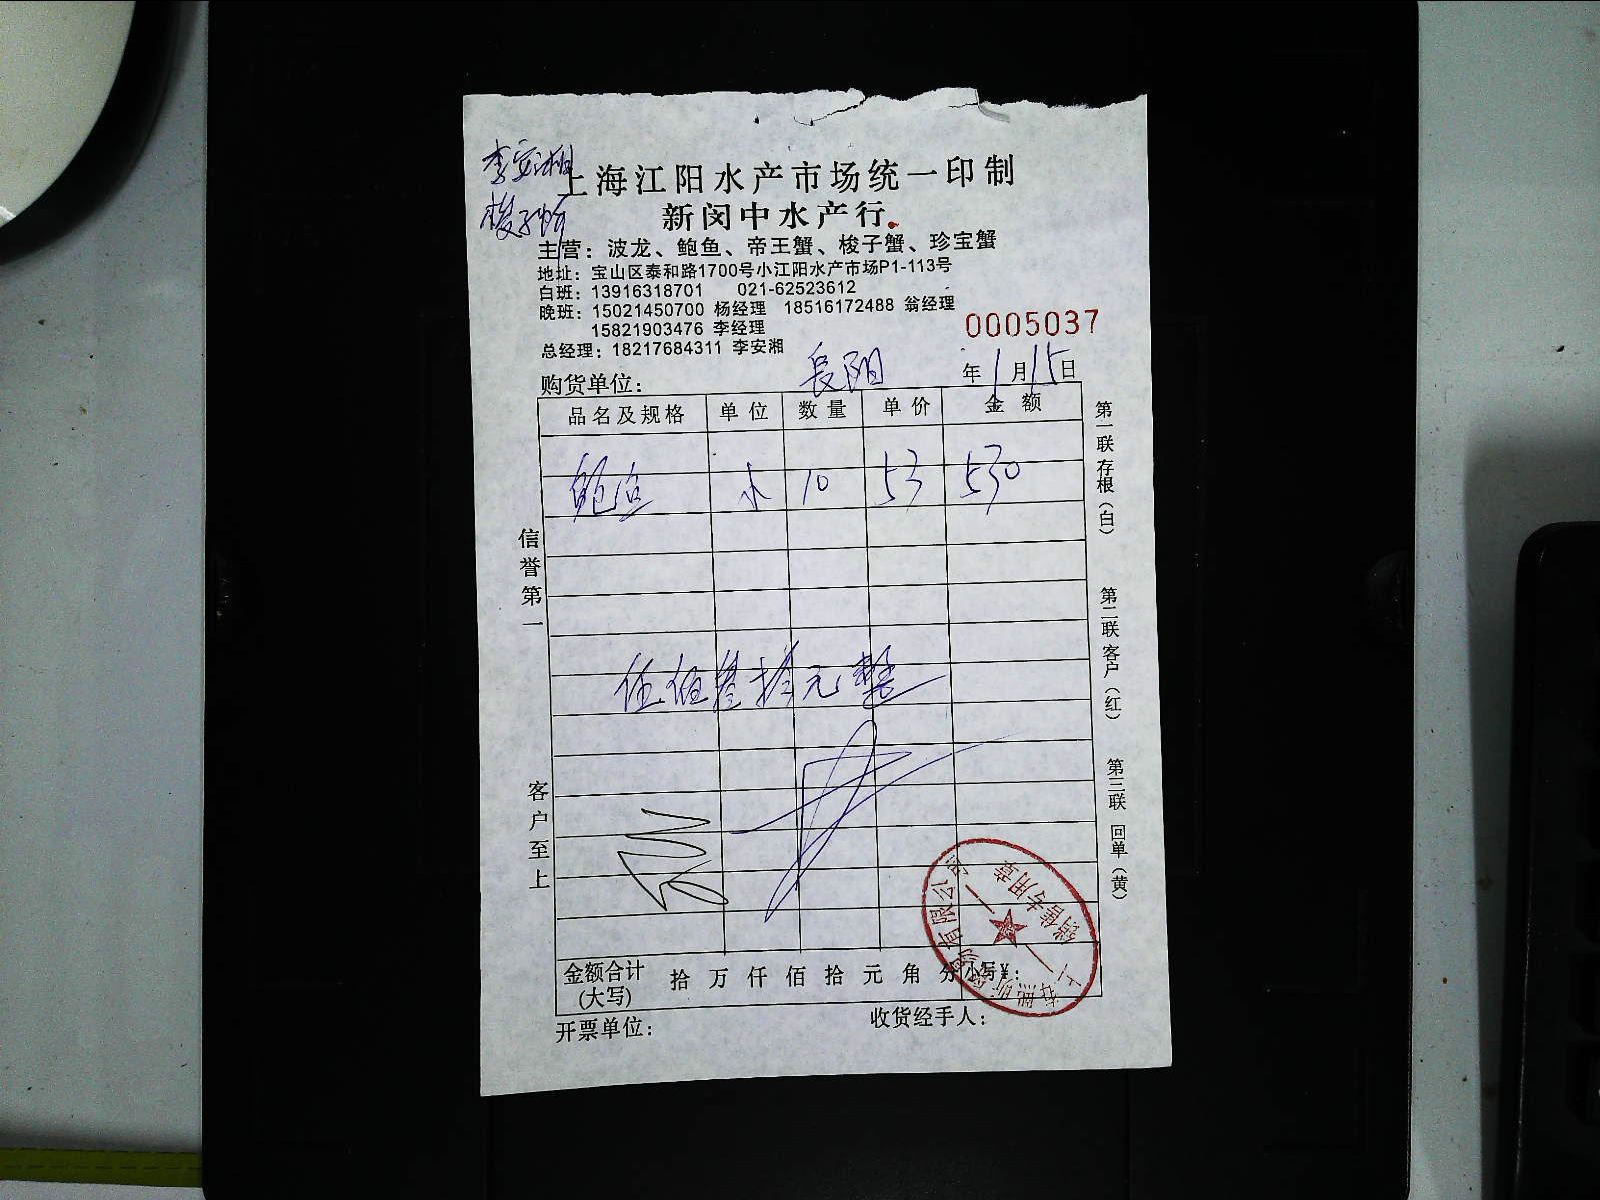 李安湘
梭子蟹
上海江阳水产市场统一印制
新闵中水产行
主营：波龙、鲍鱼、帝王蟹、梭子蟹、珍宝蟹
地址：宝山区泰和路1700号小江阳水产市场P1-113号
白班：13916318701 021-62523612
晚班：15021450700 杨经理 18516172488 翁经理
15821903476 李经理
总经理：18217684311 李安湘
0005037
购货单位： 長阳 年 1 月 15 日
品名及规格 单位 数量 单价 金额
鲍鱼 10 53 530
伍佰叁拾元整
金额合计(大写) 拾 万 仟 佰 拾 元 角 分 小写¥：
开票单位： 收货经手人：
信誉第一
客户至上
第一联 存根（白）
第二联 客户（红）
第三联 回单（黄）
有限公司
销售专用章